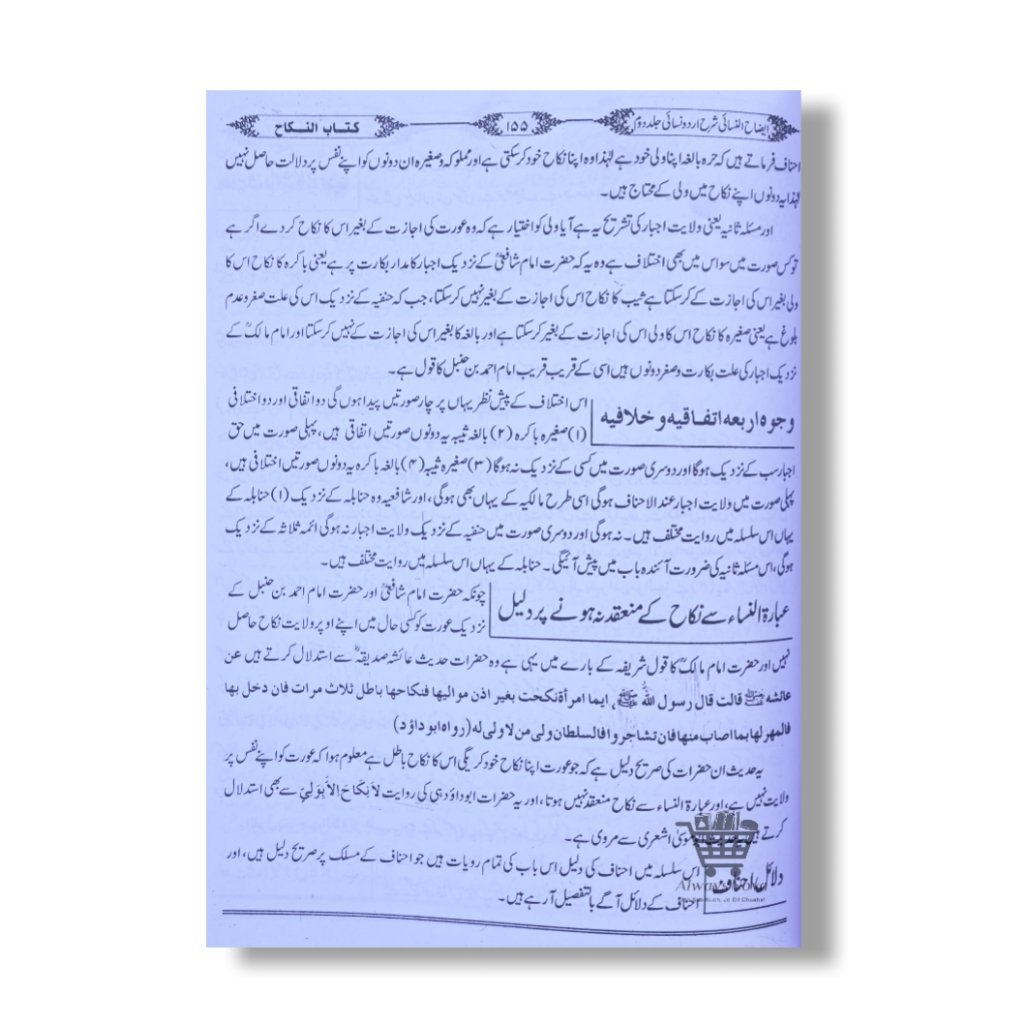 ایضاح النسائی شرح اردو نسائی جلد دوم ۱۵۵ کتاب النکاح
احناف فرماتے ہیں کہ حرہ بالغہ اپنا ولی خود ہے لہٰذا وہ اپنا نکاح خود کرسکتی ہے اور مملوکہ و صغیرہ ان دونوں کو اپنے نفس پر دلالت حاصل نہیں
لہٰذا یہ دونوں اپنے نکاح میں ولی کے محتاج ہیں۔
اور مسئلہ ثانیہ یعنی ولایت اجبار کی تشریح یہ ہے آیا ولی کو اختیار ہے کہ وہ عورت کی اجازت کے بغیر اس کا نکاح کردے اگر ہے
تو کس صورت میں سو اس میں بھی اختلاف ہے وہ یہ کہ حضرت امام شافعیؒ کے نزدیک اجبار کا مدار بکارت پر ہے یعنی باکرہ کا نکاح اس کا
ولی بغیر اس کی اجازت کے کرسکتا ہے ثیب کا نکاح اس کی اجازت کے بغیر نہیں کرسکتا، جب کہ حنفیہ کے نزدیک اس کی علت صغر وعدم
بلوغ ہے یعنی صغیرہ کا نکاح اس کا ولی اس کی اجازت کے بغیر کرسکتا ہے اور بالغہ کا بغیر اس کی اجازت کے نہیں کرسکتا اور امام مالکؒ کے
نزدیک اجبار کی علت بکارت و صغر دونوں ہیں اسی کے قریب قریب امام احمد بن حنبل کا قول ہے۔
وجوہ اربعہ اتفاقیہ و خلافیہ
اس اختلاف کے پیش نظر یہاں پر چار صورتیں پیدا ہوں گی دو اتفاقی اور دو اختلافی
(۱) صغیرہ باکرہ (۲) بالغہ ثیبہ یہ دونوں صورتیں اتفاقی ہیں، پہلی صورت میں حق
اجبار سب کے نزدیک ہوگا اور دوسری صورت میں کسی کے نزدیک نہ ہوگا (۳) صغیرہ ثیبہ (۴) بالغہ باکرہ یہ دونوں صورتیں اختلافی ہیں،
پہلی صورت میں ولایت اجبار عند الاحناف ہوگی اسی طرح مالکیہ کے یہاں بھی ہوگی، اور شافعیہ وحنابلہ کے نزدیک (۱) حنابلہ کے
یہاں اس سلسلہ میں روایت مختلف ہیں۔ نہ ہوگی اور دوسری صورت میں حنفیہ کے نزدیک ولایت اجبار نہ ہوگی ائمہ ثلاثہ کے نزدیک
ہوگی، اس مسئلہ ثانیہ کی ضرورت آئندہ باب میں پیش آئیگی۔ حنابلہ کے یہاں اس سلسلہ میں روایت مختلف ہیں۔
عبارۃ النساء سے نکاح کے منعقد نہ ہونے پر دلیل
چونکہ حضرت امام شافعیؒ اور حضرت امام احمد بن حنبل کے
نزدیک عورت کو کسی حال میں اپنے اوپر ولایت نکاح حاصل
نہیں اور حضرت امام مالکؒ کا قول شریفہ کے بارے میں یہی ہے وہ حضرات حدیث عائشہ صدیقہؓ سے استدلال کرتے ہیں عن
عائشہ قالت قال رسول اللہ ﷺ، ایما امرأة نکحت بغیر اذن موالیها فنکاحها باطل ثلاث مرات فان دخل بها
فالمهر لها بما اصاب منها فان تشاجروا فالسلطان ولی من لا ولی له (رواه ابو داؤد)
یہ حدیث ان حضرات کی صریح دلیل ہے کہ جو عورت اپنا نکاح خود کریگی اس کا نکاح باطل ہے معلوم ہوا کہ عورت کو اپنے نفس پر
ولایت نہیں ہے، اور عبارۃ النساء سے نکاح منعقد نہیں ہوتا، اور یہ حضرات ابوداؤد ہی کی روایت لَانِکَاحَ الاَّبِوَلِیّ سے بھی استدلال
کرتے اشعری سے مروی ہے۔
دلائل احناف
اس سلسلہ میں احناف کی دلیل اس باب کی تمام روایات ہیں جو احناف کے مسلک پر صریح دلیل ہیں، اور
احناف کے دلائل آگے بالتفصیل آرہے ہیں۔